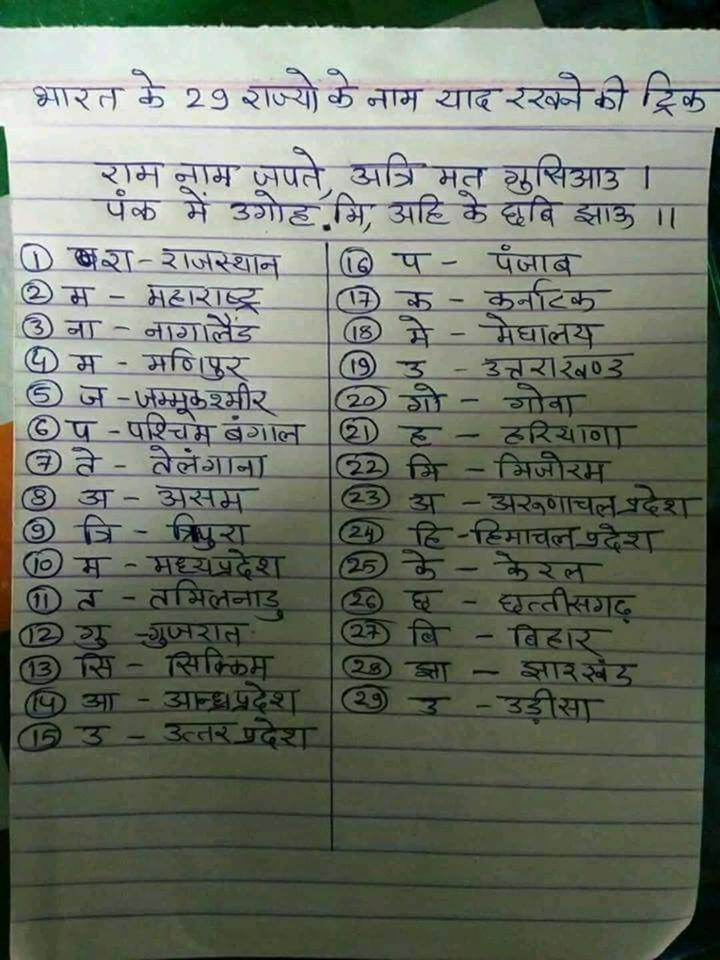 भारत के 29 राज्यो के नाम याद रखने की ट्रिक
राम नाम जपते, अत्रि मत गुसिआउ ।
पंक में उगोह.मि, अहि के छबि झाऊ ॥
① रा - राजस्थान
② म - महाराष्ट्र
③ ना - नागालैंड
④ म - मणिपुर
⑤ ज - जम्मूकश्मीर
⑥ प - पश्चिम बंगाल
⑦ ते - तेलंगाना
⑧ अ - असम
⑨ त्रि - त्रिपुरा
⑩ म - मध्यप्रदेश
⑪ त - तमिलनाडु
⑫ गु - गुजरात
⑬ सि - सिक्किम
⑭ आ - आन्ध्रप्रदेश
⑮ उ - उत्तर प्रदेश
⑯ प - पंजाब
⑰ क - कर्नाटक
⑱ मे - मेघालय
⑲ उ - उत्तराखण्ड
⑳ गो - गोवा
㉑ ह - हरियाणा
㉒ मि - मिजोरम
㉓ अ - अरूणाचल प्रदेश
㉔ हि - हिमाचल प्रदेश
㉕ के - केरल
㉖ छ - छत्तीसगढ़
㉗ बि - बिहार
㉘ झा - झारखंड
㉙ उ - उड़ीसा